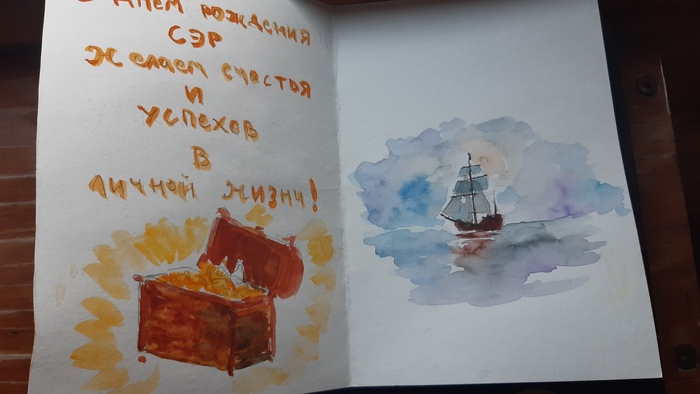 С ДНЁМ РОЖДЕНИЯ
СЭР
Желаем счастья
И
УСПЕХОВ
В
личной жизни!